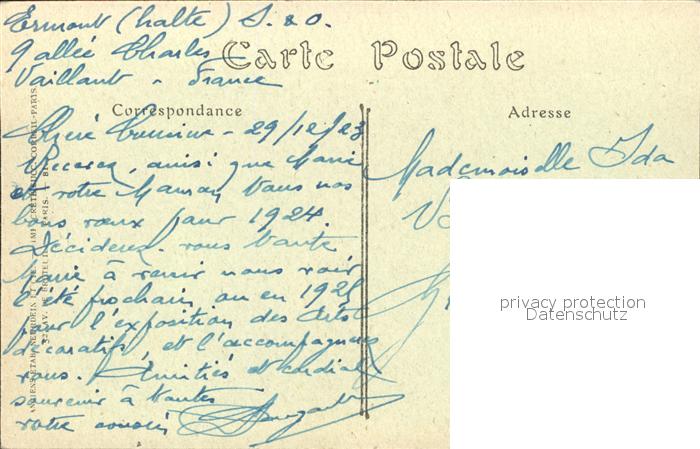 Ermont (halte) S. & O.
9 allée Charles
Vaillant - France
Carte Postale
Correspondance
Adresse
Chère Cousine - 29/12/23
Recevez, ainsi que Marie
et votre Maman tous nos
bons vœux pour 1924.
Décidez-vous tante
Marie à venir nous voir
l'été prochain ou en 1925
pour l'exposition des Arts
décoratifs, et l'accompagnez
vous. Amitiés et cordial
souvenir à toutes
votre cousin
Mademoiselle Ida
privacy protection
Datenschutz